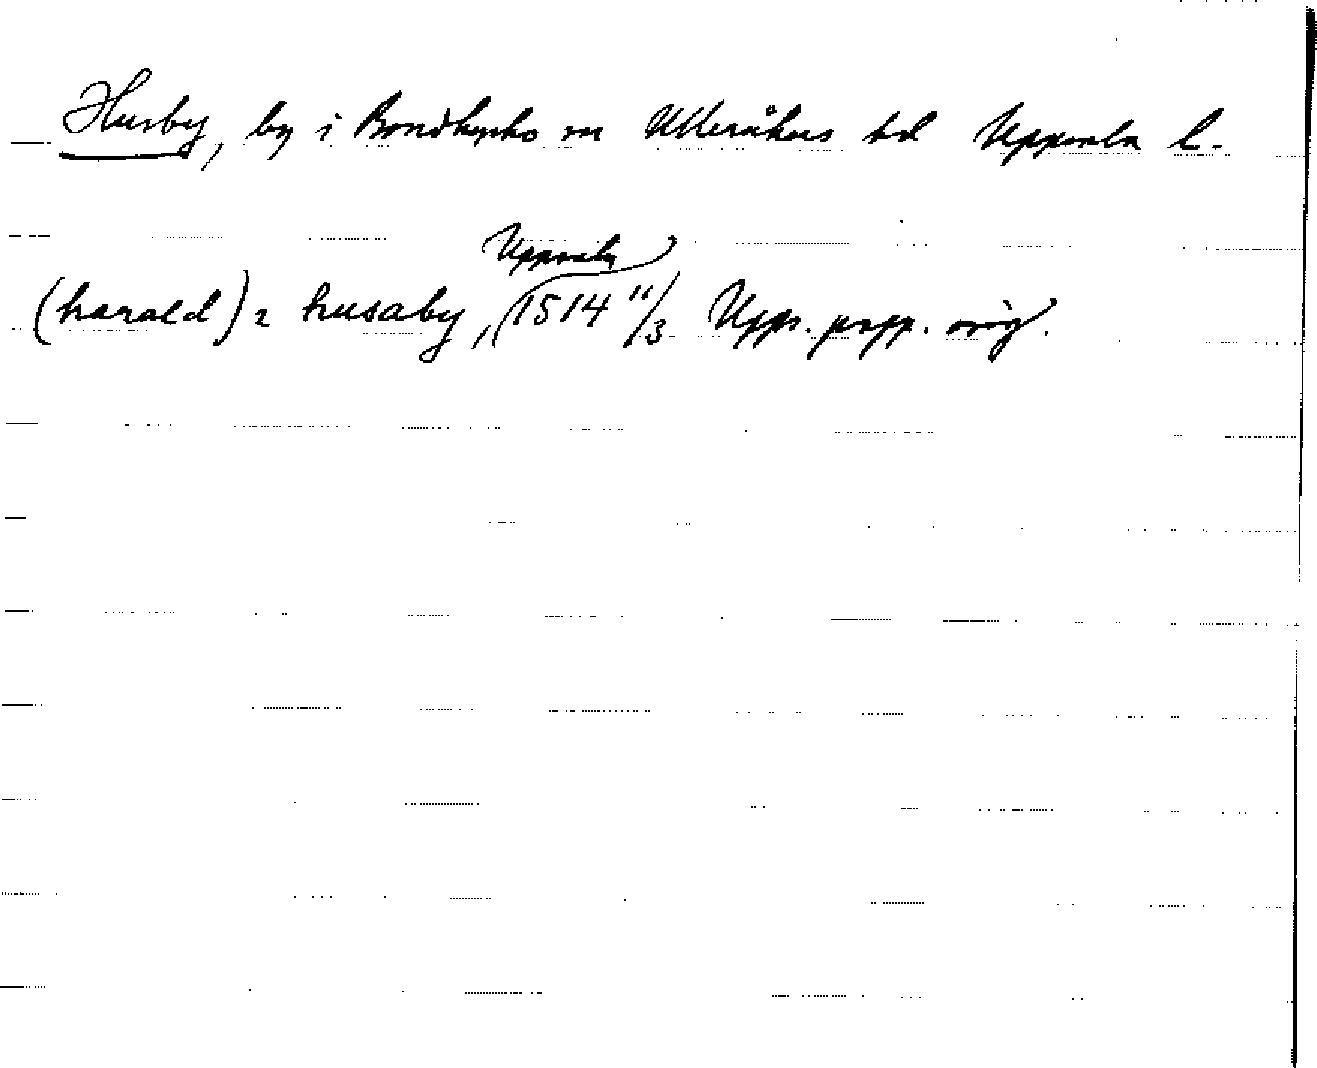 Husby, by i Bondkyrko sn Ulleråkers hd Uppsala l.
Uppsala
(harald) i husaby, 1514 11/3 Upps. prpp. orig.